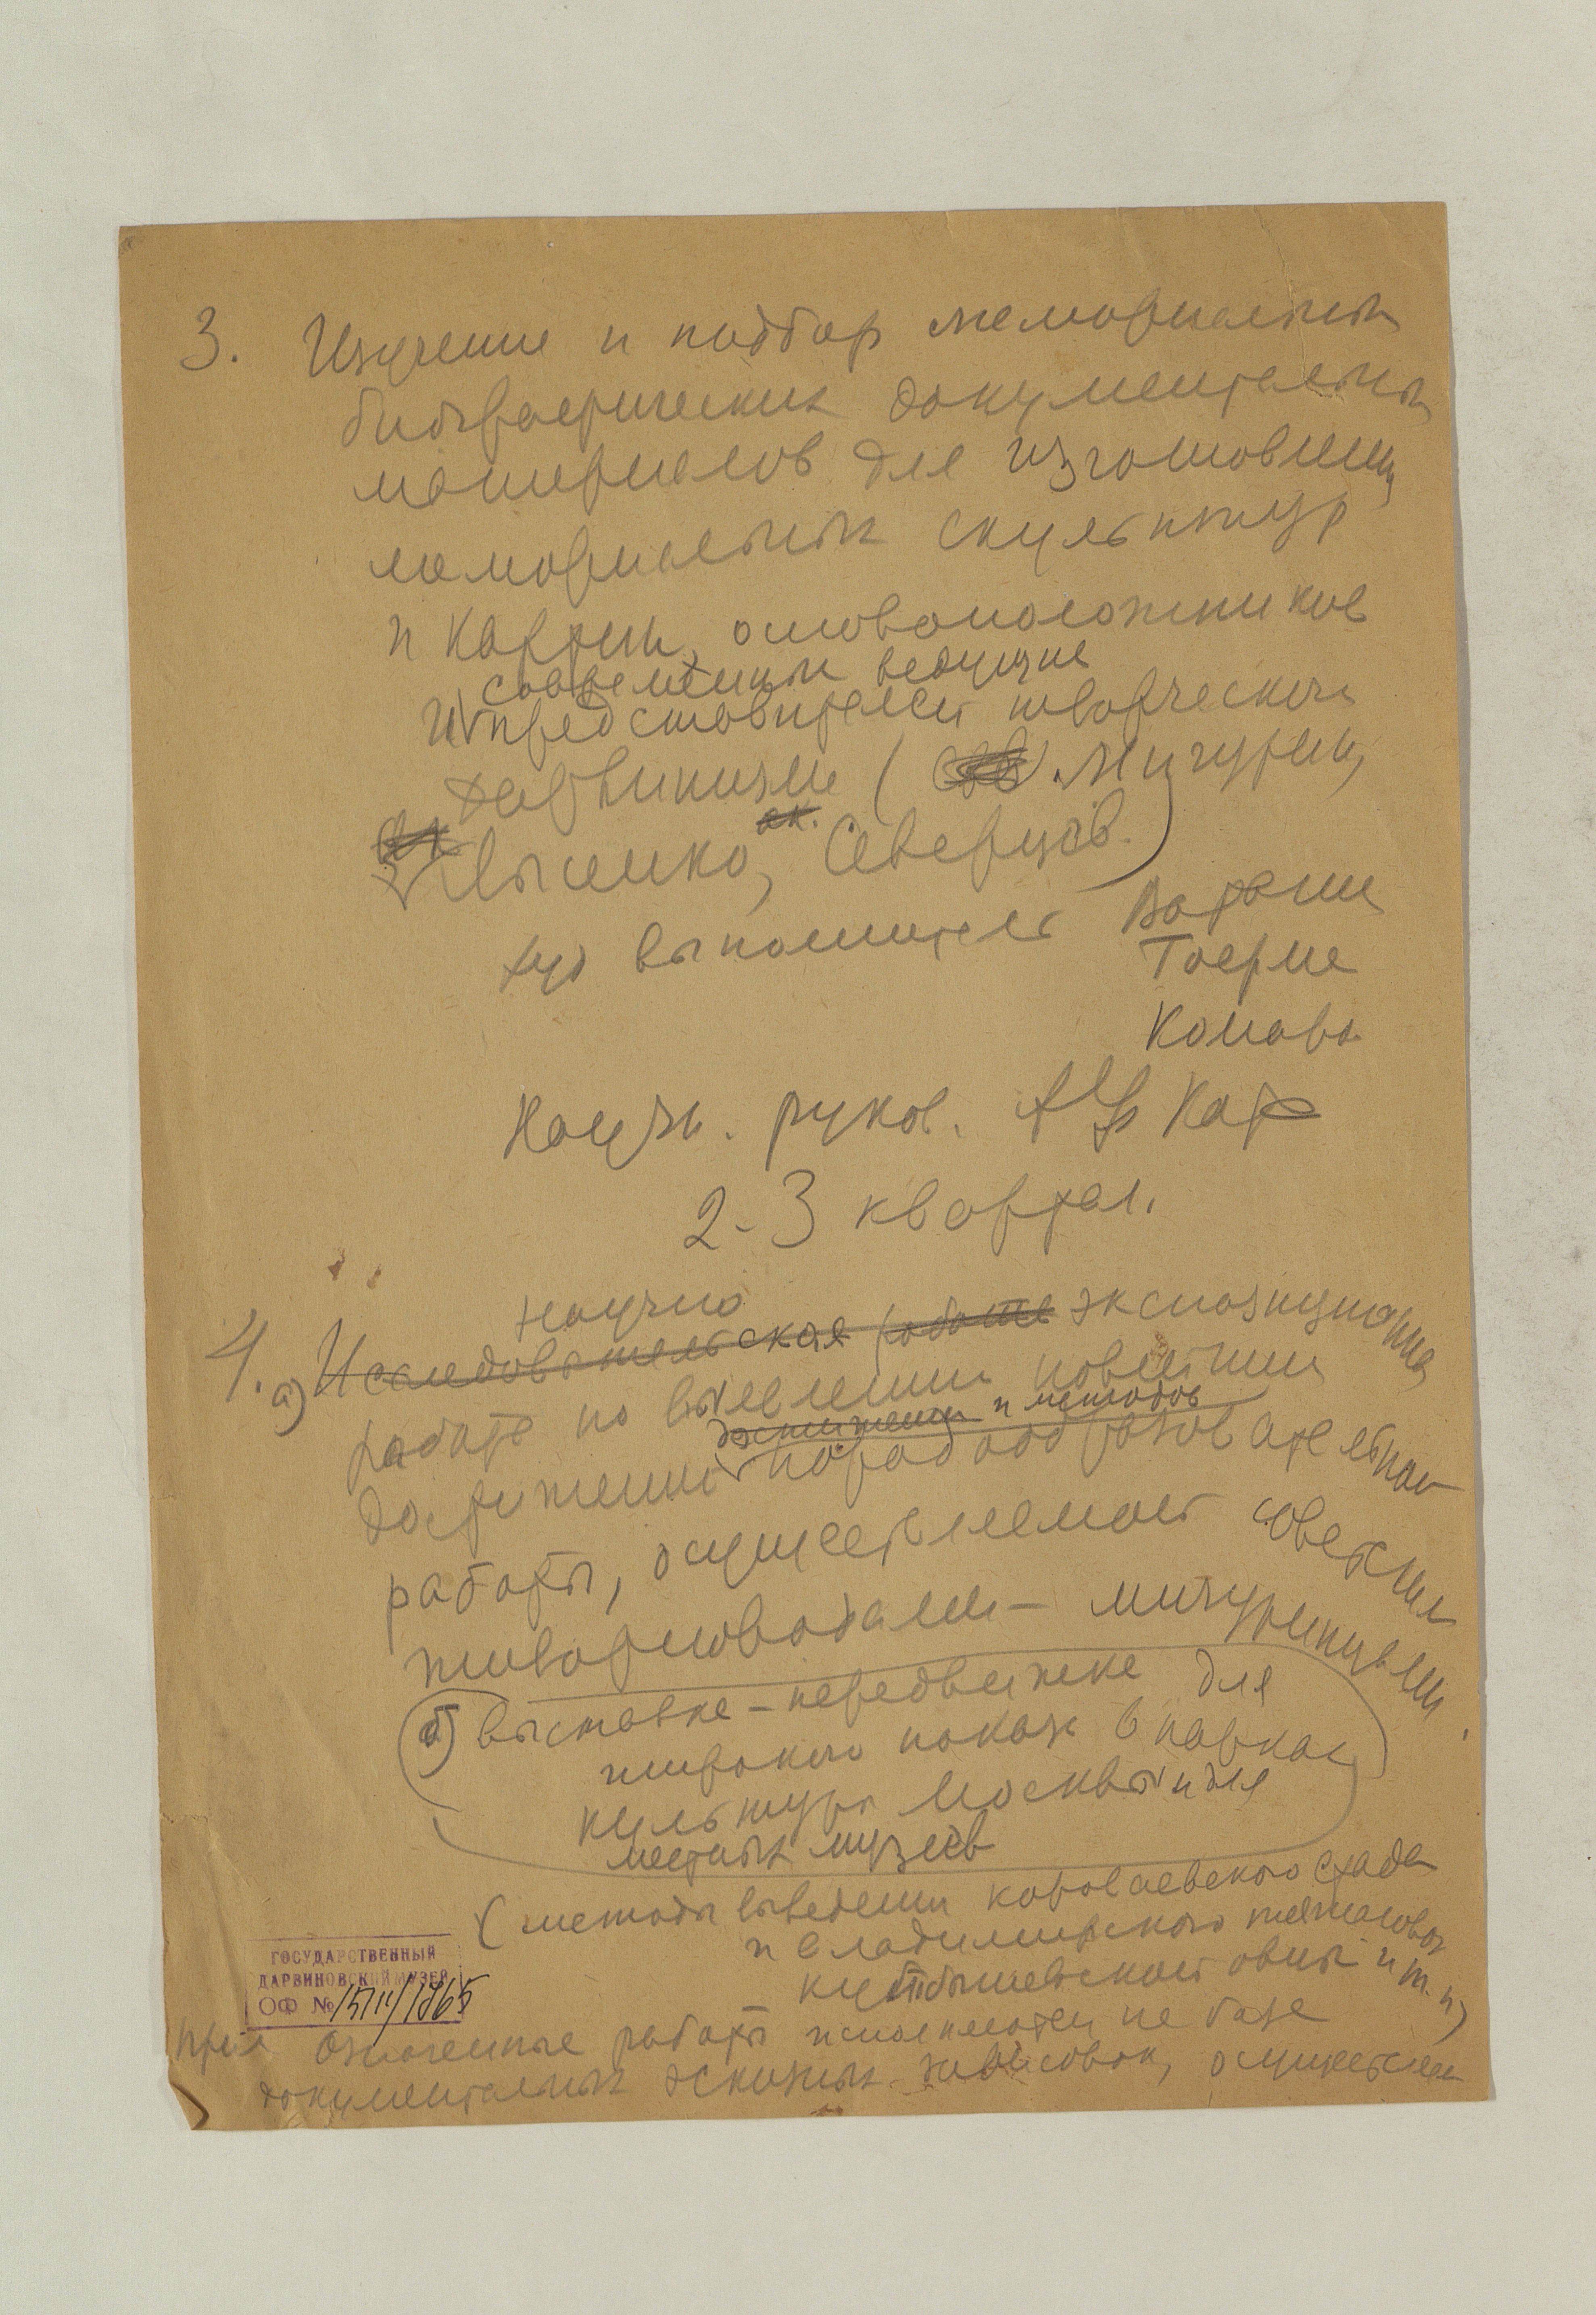 3. Изучение и подбор мемориальных
биографических документальных
материалов для изготовления
мемориальных скульптур
и картин, основоположников
современных ведущих
и представителей творческого
дарвинизма ( Мичурин,
Лысенко, ак. Северцов.)
худ выполнитель Ватагин
Комаров
Научн. руков. Котс
2-3 квартал.
научно
4. а) Исследовательская работа экспозиционная
работа по выявлению новейших
достижений и методов
достижений породообразовательной
работы, осуществляемой советскими
животноводами - мичуринцами.
б) выставка-передвижка для
широкого показа в парках
культуры Москвы и для
местных музеев
(методы выведения караваевского стада
и владимирского тяжеловоза
куйбышевской овцы и т. п)
ГОСУДАРСТВЕННЫЙ
ДАРВИНОВСКИЙ МУЗЕЙ
ОФ №
прим Означенные работы исполняются на базе
документальных эскизных зарисовок, осуществлен